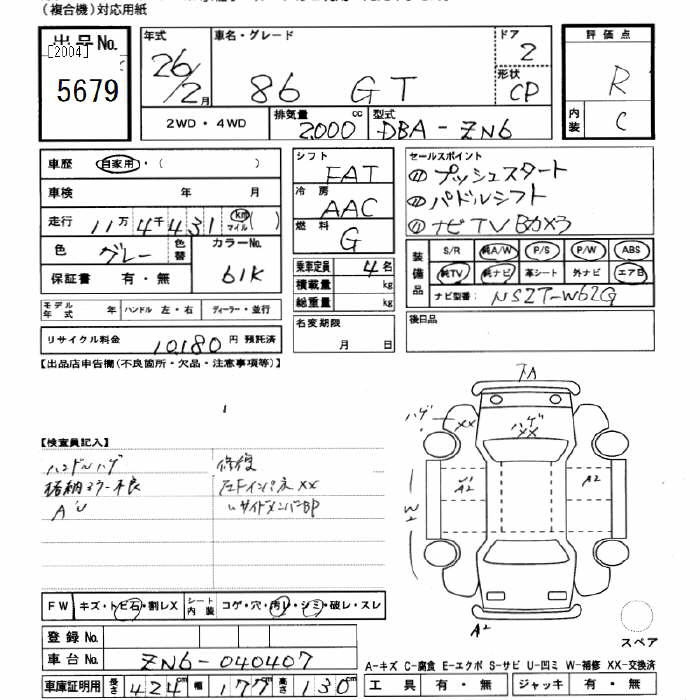 (複合機)対応用紙
出品No.
[2004]
5679
年式
26/2月
車名・グレード
86 GT
ドア
2
形状
CP
評価点
R
内装
C
2WD・4WD
排気量
2000cc
型式
DBA-ZN6
車歴 自家用・( )
車検 年 月
走行 11万4千431 km マイル ( )
色 グレー 色替
カラーNo. 61K
保証書 有・無
モデル年式 年 ハンドル 左・右 ディーラー・並行
リサイクル料金 10,180円 預託済
シフト FAT
冷房 AAC
燃料 G
乗車定員 4名
積載量 kg
総重量 kg
名変期限
月 日
セールスポイント
プッシュスタート
パドルシフト
ナビTV Bカメラ
装備品
S/R 純A/W P/S P/W ABS
純TV 純ナビ 革シート 外ナビ エア目
ナビ型番: NSZT-W62G
後日品
【出品店申告欄(不良箇所・欠品・注意事項等)】
【検査員記入】
ハンドルハゲ
格納ミラー不良
修復
XX
サイドメンバーBP
FW キズ・トビ石・割レX
シート内装 コゲ・穴・汚レ・シミ・破レ・スレ
登録No.
車台No. ZN6-040407
車庫証明用 長さ 424cm 幅 177cm 高さ 130cm
ハゲ XX
ハゲ
XX
A2
A2
A2
スペア
A-キズ C-腐食 E-エクボ S-サビ U-凹ミ W-補修 XX-交換済
工具 有・無 ジャッキ 有・無